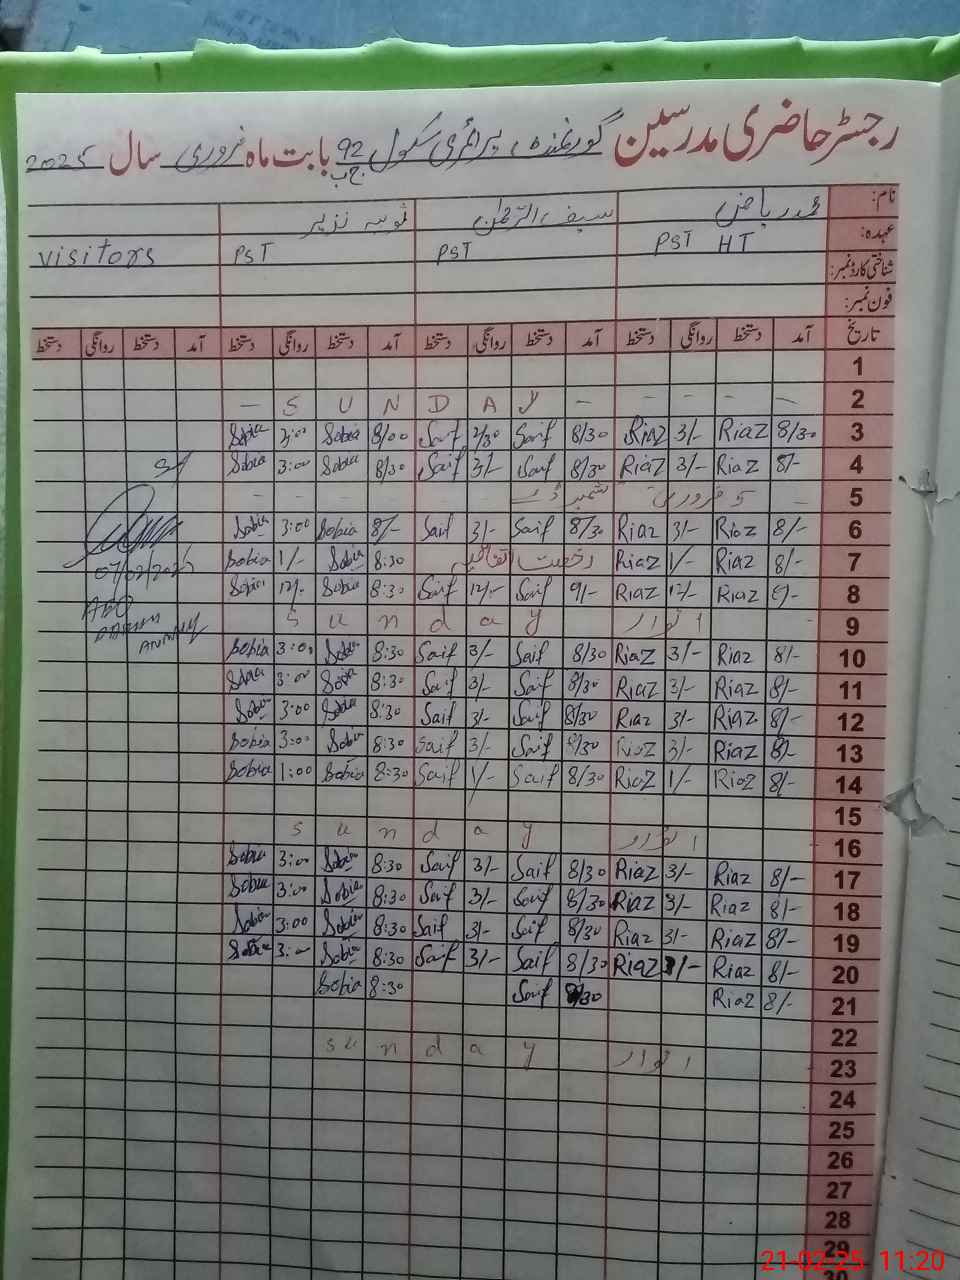 رجسٹر حاضری مدرسین گورنمنٹ پرائمری سکول 92 ج ب بابت ماہ فروری سال 2025
نام: محمد ریاض سیف الرحمٰن ثوبیہ نزیر
عہدہ: PST HT PST PST visitors
شناختی کارڈ نمبر:
فون نمبر:
تاریخ آمد دستخط روانگی دستخط آمد دستخط روانگی دستخط آمد دستخط روانگی دستخط آمد دستخط روانگی دستخط
1
2 — S U N D A Y
3 8/30 Riaz 3/- Riaz 8/30 Saif 2/30 Saif 8/00 Sobia 3:00 Sobia
4 8/- Riaz 3/- Riaz 8/30 Saif 3/- Saif 8/30 Sobia 3:00 Sobia
5 5 فروری کشمیر ڈے
6 8/- Riaz 3/- Riaz 8/30 Saif 3/- Saif 8/- Sobia 3:00 Sobia
7 8/- Riaz 1/- Riaz رخصت اتفاقیہ 8:30 Sobia 1/- Sobia 07/02/2025
8 8/- Riaz 12/- Riaz 9/- Saif 12/- Saif 8:30 Sobia 12/- Sobia
9 اتوار s u n d a y
10 8/- Riaz 3/- Riaz 8/30 Saif 3/- Saif 8:30 Sobia 3:00 Sobia
11 8/- Riaz 3/- Riaz 8/30 Saif 3/- Saif 8:30 Sobia 3:00 Sobia
12 8/- Riaz 3/- Riaz 8/30 Saif 3/- Saif 8:30 Sobia 3:00 Sobia
13 8/- Riaz 3/- Riaz 8/30 Saif 3/- Saif 8:30 Sobia 3:00 Sobia
14 8/- Riaz 1/- Riaz 8/30 Saif 1/- Saif 8:30 Sobia 1:00 Sobia
15
16 اتوار s u n d a y
17 8/- Riaz 3/- Riaz 8/30 Saif 3/- Saif 8:30 Sobia 3:00 Sobia
18 8/- Riaz 3/- Riaz 8/30 Saif 3/- Saif 8:30 Sobia 3:00 Sobia
19 8/- Riaz 3/- Riaz 8/30 Saif 3/- Saif 8:30 Sobia 3:00 Sobia
20 8/- Riaz 3/- Riaz 8/30 Saif 3/- Saif 8:30 Sobia 3:00 Sobia
21 8/- Riaz 8/30 Saif 8:30 Sobia
22
23 اتوار s u n d a y
24
25
26
27
28
29
30
21-02-25 11:20